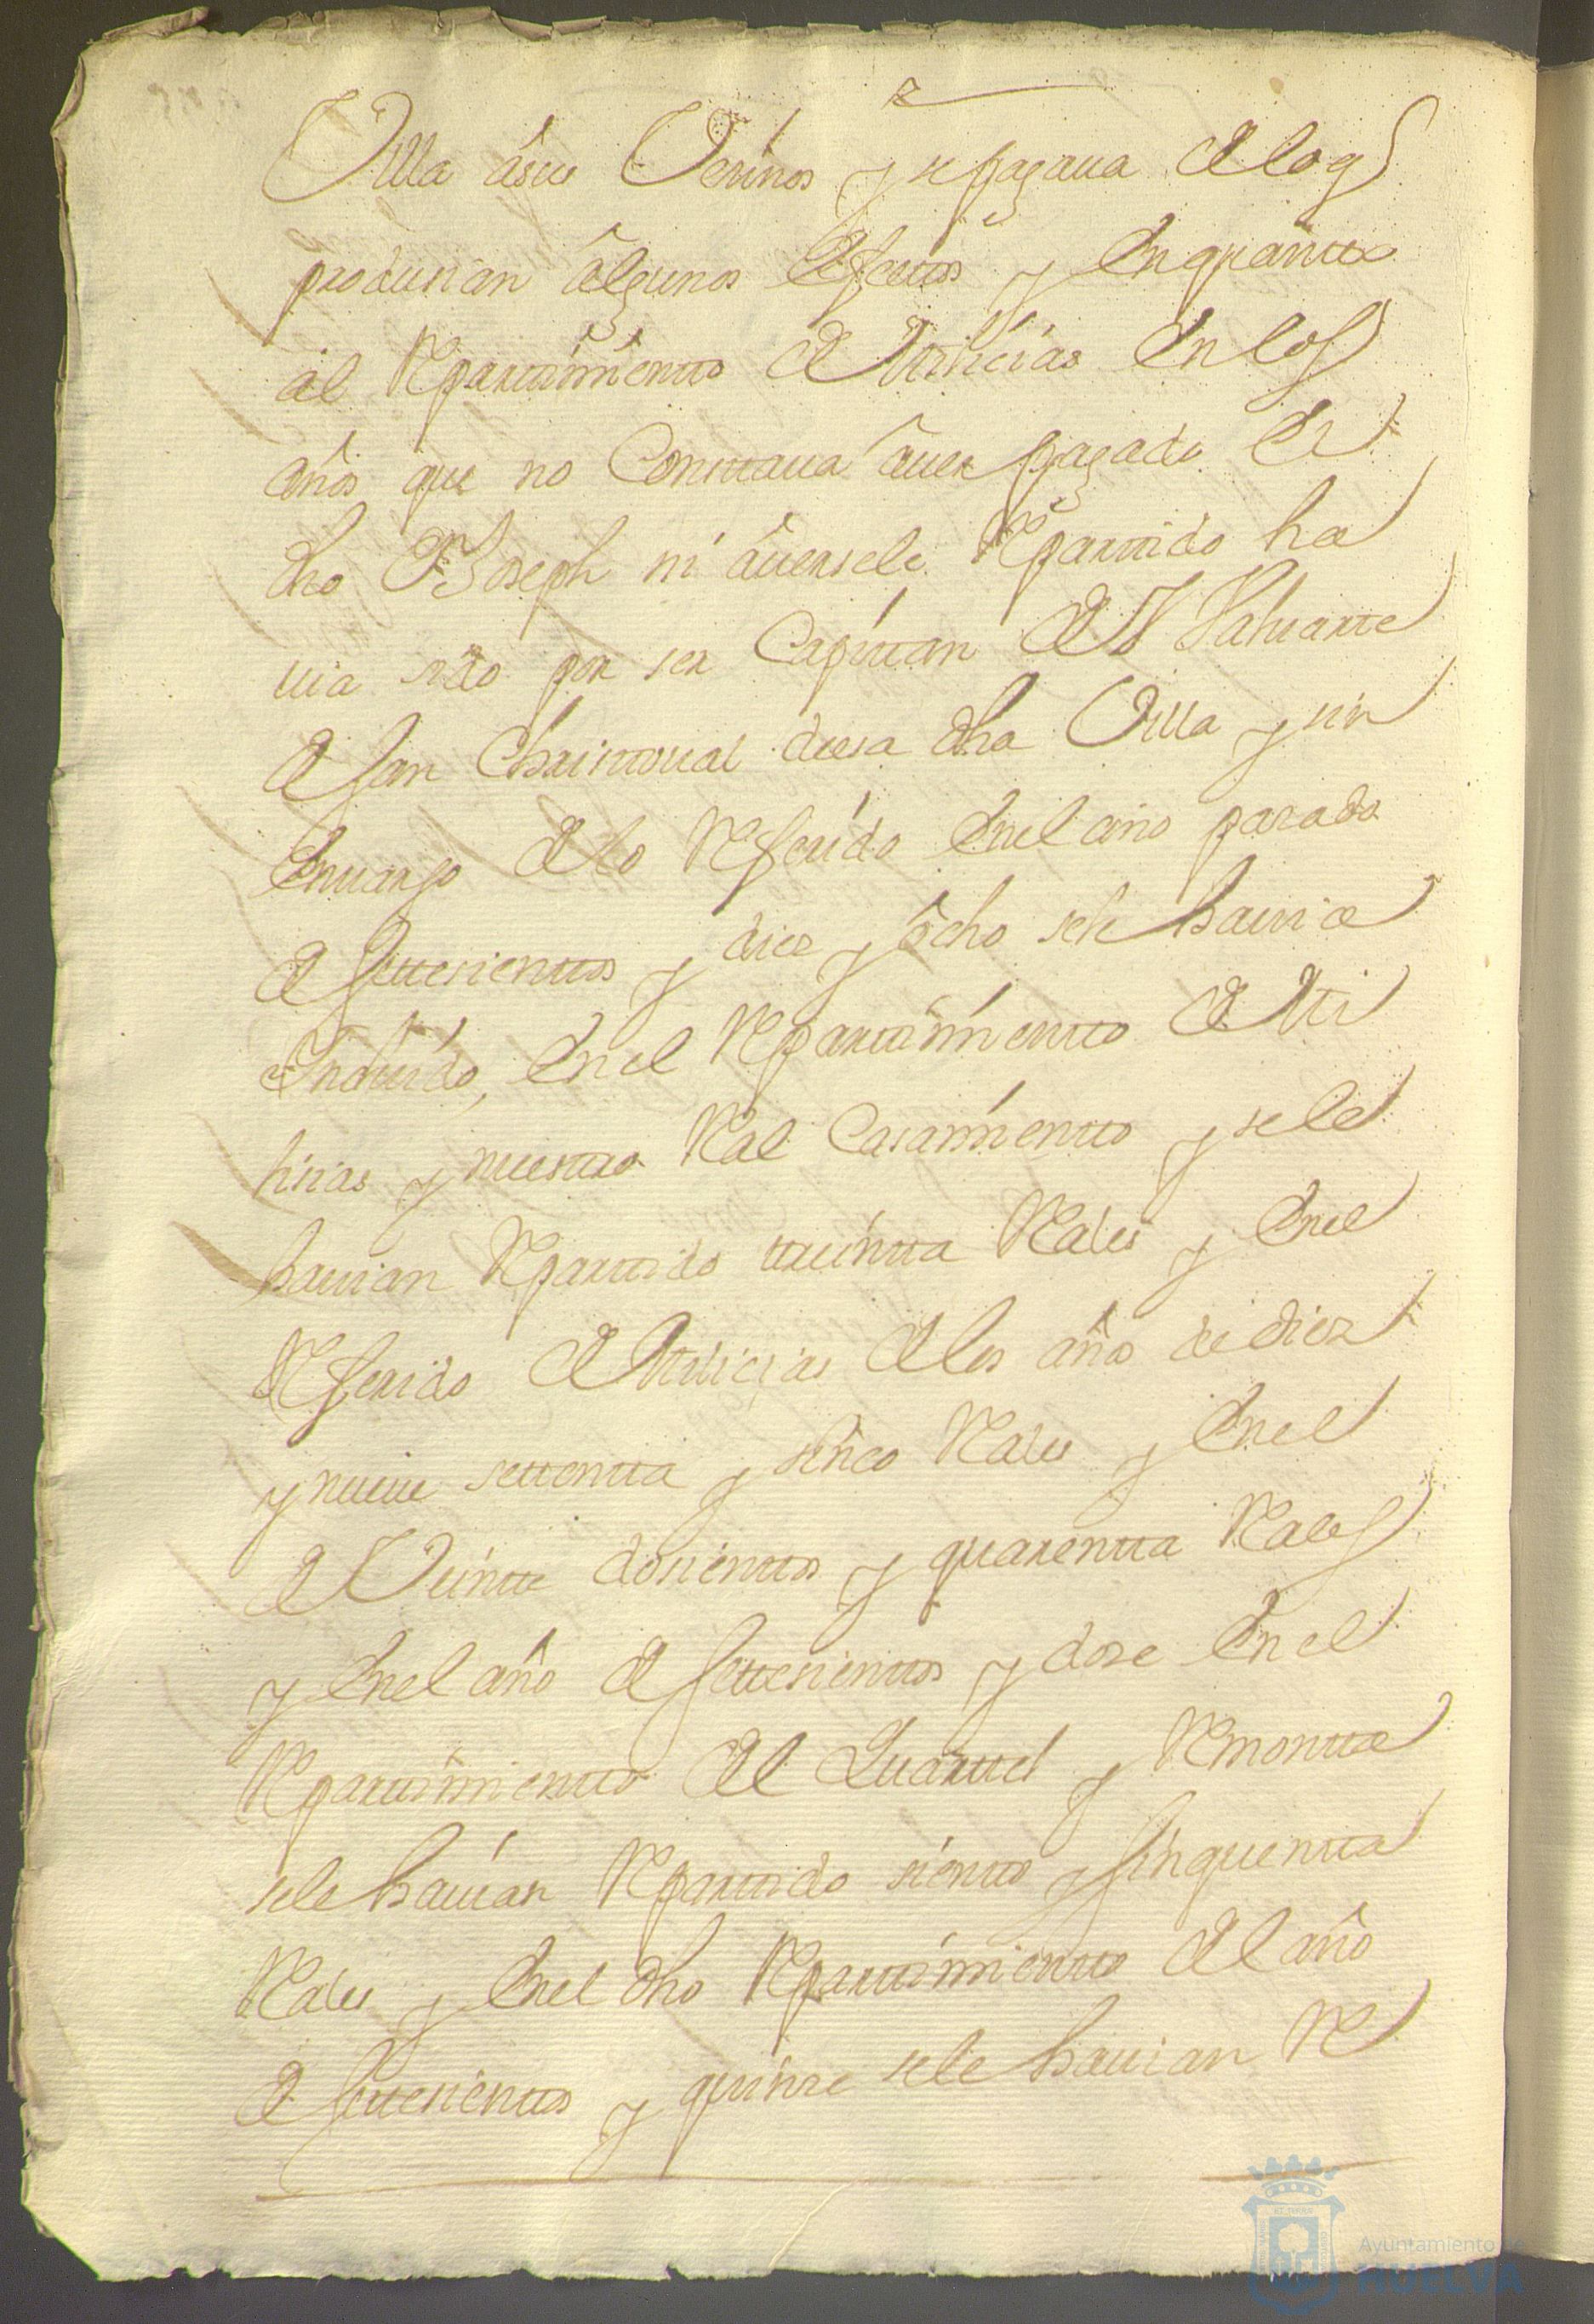 Villa âsus Vezinos y sepagaua deloq
produsian âlgunos Efectos y Enquantto
âl Repartimientto de Utticias Enlos
años que no Consttaua âuer pagado El
dho Joseph ni âuersele Reparttido ha
uia sido por ser Capittan del Valuartte
de San Chisttoual desa dha Villa y sin
Enuargo delo Referido Enel año pasado
de settesienttos y diez y ôcho sele hauia
Incluido, Enel Reparttimientto de Uti
licias y nuesttro Real Casamientto y sele
hauian Reparttido treintta Reales y Enel
Referido de Vtticias delos año de diez
y nueue settentta y sinco Reales y Enel
de Veintte dosienttos y quarentta Reales
y Enel año de settesienttos y dose Enel
Reparttimientto del Quarttel y Remontta
sele hauian Reparttido sientto y sinquentta
Reales y Enel dho Reparttimientto del año
de settesienttos y quinse sele hauian Re
Ayuntamiento de
HUELVA